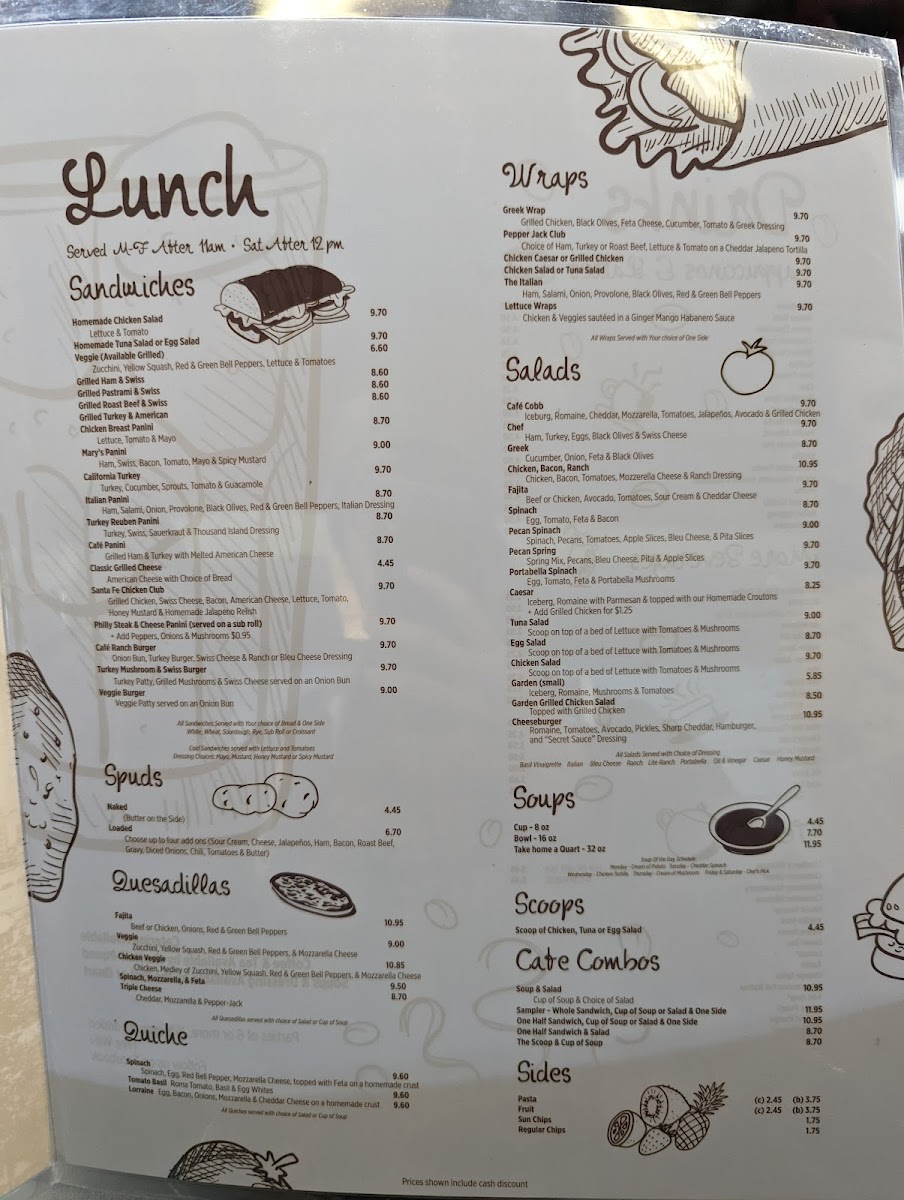 Lunch
Served M-F After 11am • Sat After 12 pm
Sandwiches
Homemade Chicken Salad 9.70
Lettuce & Tomato
Homemade Tuna Salad or Egg Salad 9.70
Veggie (Available Grilled) 6.60
Zucchini, Yellow Squash, Red & Green Bell Peppers, Lettuce & Tomatoes
Grilled Ham & Swiss 8.60
Grilled Pastrami & Swiss 8.60
Grilled Roast Beef & Swiss 8.60
Grilled Turkey & American
Chicken Breast Panini 8.70
Lettuce, Tomato & Mayo
Mary's Panini 9.00
Ham, Swiss, Bacon, Tomato, Mayo & Spicy Mustard
California Turkey 9.70
Turkey, Cucumber, Sprouts, Tomato & Guacamole
Italian Panini 8.70
Ham, Salami, Onion, Provolone, Black Olives, Red & Green Bell Peppers, Italian Dressing
Turkey Reuben Panini 8.70
Turkey, Swiss, Sauerkraut & Thousand Island Dressing
Café Panini 8.70
Grilled Ham & Turkey with Melted American Cheese
Classic Grilled Cheese 4.45
American Cheese with Choice of Bread
Santa Fe Chicken Club 9.70
Grilled Chicken, Swiss Cheese, Bacon, American Cheese, Lettuce, Tomato,
Honey Mustard & Homemade Jalapeno Relish
Philly Steak & Cheese Panini (served on a sub roll) 9.70
+ Add Peppers, Onions & Mushrooms $0.95
Café Ranch Burger 9.70
Onion Bun, Turkey Burger, Swiss Cheese & Ranch or Bleu Cheese Dressing
Turkey Mushroom & Swiss Burger 9.70
Turkey Patty, Grilled Mushrooms & Swiss Cheese served on an Onion Bun
Veggie Burger 9.00
Veggie Patty served on an Onion Bun
All Sandwiches Served with Your choice of Bread & One Side
White, Wheat, Sourdough, Rye, Sub Roll or Croissant
Cold Sandwiches served with Lettuce and Tomatoes
Dressing Choices: Mayo, Mustard, Honey Mustard or Spicy Mustard
Spuds
Naked 4.45
(Butter on the Side)
Loaded 6.70
Choose up to four add ons (Sour Cream, Cheese, Jalapeños, Ham, Bacon, Roast Beef,
Gravy, Diced Onions, Chili, Tomatoes & Butter)
Quesadillas
Fajita 10.95
Beef or Chicken, Onions, Red & Green Bell Peppers
Veggie 9.00
Zucchini, Yellow Squash, Red & Green Bell Peppers, & Mozzarella Cheese
Chicken Veggie 10.85
Chicken, Medley of Zucchini, Yellow Squash, Red & Green Bell Peppers, & Mozzarella Cheese
Spinach, Mozzarella, & Feta 9.50
Triple Cheese 8.70
Cheddar, Mozzarella & Pepper-Jack
All Quesadillas served with choice of Salad or Cup of Soup
Quiche
Spinach 9.60
Spinach, Egg, Red Bell Pepper, Mozzarella Cheese, topped with Feta on a homemade crust
Tomato Basil Roma Tomato, Basil & Egg Whites 9.60
Lorraine Egg, Bacon, Onions, Mozzarella & Cheddar Cheese on a homemade crust 9.60
All Quiches served with choice of Salad or Cup of Soup
Wraps
Greek Wrap 9.70
Grilled Chicken, Black Olives, Feta Cheese, Cucumber, Tomato & Greek Dressing
Pepper Jack Club 9.70
Choice of Ham, Turkey or Roast Beef, Lettuce & Tomato on a Cheddar Jalapeno Tortilla
Chicken Caesar or Grilled Chicken 9.70
Chicken Salad or Tuna Salad 9.70
The Italian 9.70
Ham, Salami, Onion, Provolone, Black Olives, Red & Green Bell Peppers
Lettuce Wraps 9.70
Chicken & Veggies sautéed in a Ginger Mango Habanero Sauce
All Wraps Served with Your choice of One Side
Salads
Café Cobb 9.70
Iceburg, Romaine, Cheddar, Mozzarella, Tomatoes, Jalapeños, Avocado & Grilled Chicken
Chef 9.70
Ham, Turkey, Eggs, Black Olives & Swiss Cheese
Greek 8.70
Cucumber, Onion, Feta & Black Olives
Chicken, Bacon, Ranch 10.95
Chicken, Bacon, Tomatoes, Mozzerella Cheese & Ranch Dressing
Fajita 9.70
Beef or Chicken, Avocado, Tomatoes, Sour Cream & Cheddar Cheese
Spinach 8.70
Egg, Tomato, Feta & Bacon
Pecan Spinach 9.00
Spinach, Pecans, Tomatoes, Apple Slices, Bleu Cheese, & Pita Slices
Pecan Spring 9.70
Spring Mix, Pecans, Bleu Cheese, Pita & Apple Slices
Portabella Spinach 9.70
Egg, Tomato, Feta & Portabella Mushrooms
Caesar 8.25
Iceberg, Romaine with Parmesan & topped with our Homemade Croutons
+ Add Grilled Chicken for $1.25
Tuna Salad 9.00
Scoop on top of a bed of Lettuce with Tomatoes & Mushrooms
Egg Salad 8.70
Scoop on top of a bed of Lettuce with Tomatoes & Mushrooms
Chicken Salad 9.70
Scoop on top of a bed of Lettuce with Tomatoes & Mushrooms
Garden (small) 5.85
Iceberg, Romaine, Mushrooms & Tomatoes
Garden Grilled Chicken Salad 8.50
Topped with Grilled Chicken
Cheeseburger 10.95
Romaine, Tomatoes, Avocado, Pickles, Sharp Cheddar, Hamburger,
and "Secret Sauce" Dressing
All Salads Served with Choice of Dressing
Basil Vinaigrette Italian Bleu Cheese Ranch Lite Ranch Portabella Oil & Vinegar Caesar Honey Mustard
Soups
Cup - 8 oz 4.45
Bowl - 16 oz 7.70
Take home a Quart - 32 oz 11.95
Soup Of the Day Schedule:
Monday - Cream of Potato Tuesday - Cheddar, Spinach
Wednesday - Chicken Tortilla Thursday - Cream of Mushroom Friday & Saturday - Chef's Pick
Scoops
Scoop of Chicken, Tuna or Egg Salad 4.45
Cafe Combos
Soup & Salad 10.95
Cup of Soup & Choice of Salad
Sampler - Whole Sandwich, Cup of Soup or Salad & One Side 11.95
One Half Sandwich, Cup of Soup or Salad & One Side 10.95
One Half Sandwich & Salad 8.70
The Scoop & Cup of Soup 8.70
Sides
Pasta (c) 2.45 (b) 3.75
Fruit (c) 2.45 (b) 3.75
Sun Chips 1.75
Regular Chips 1.75
Prices shown include cash discount